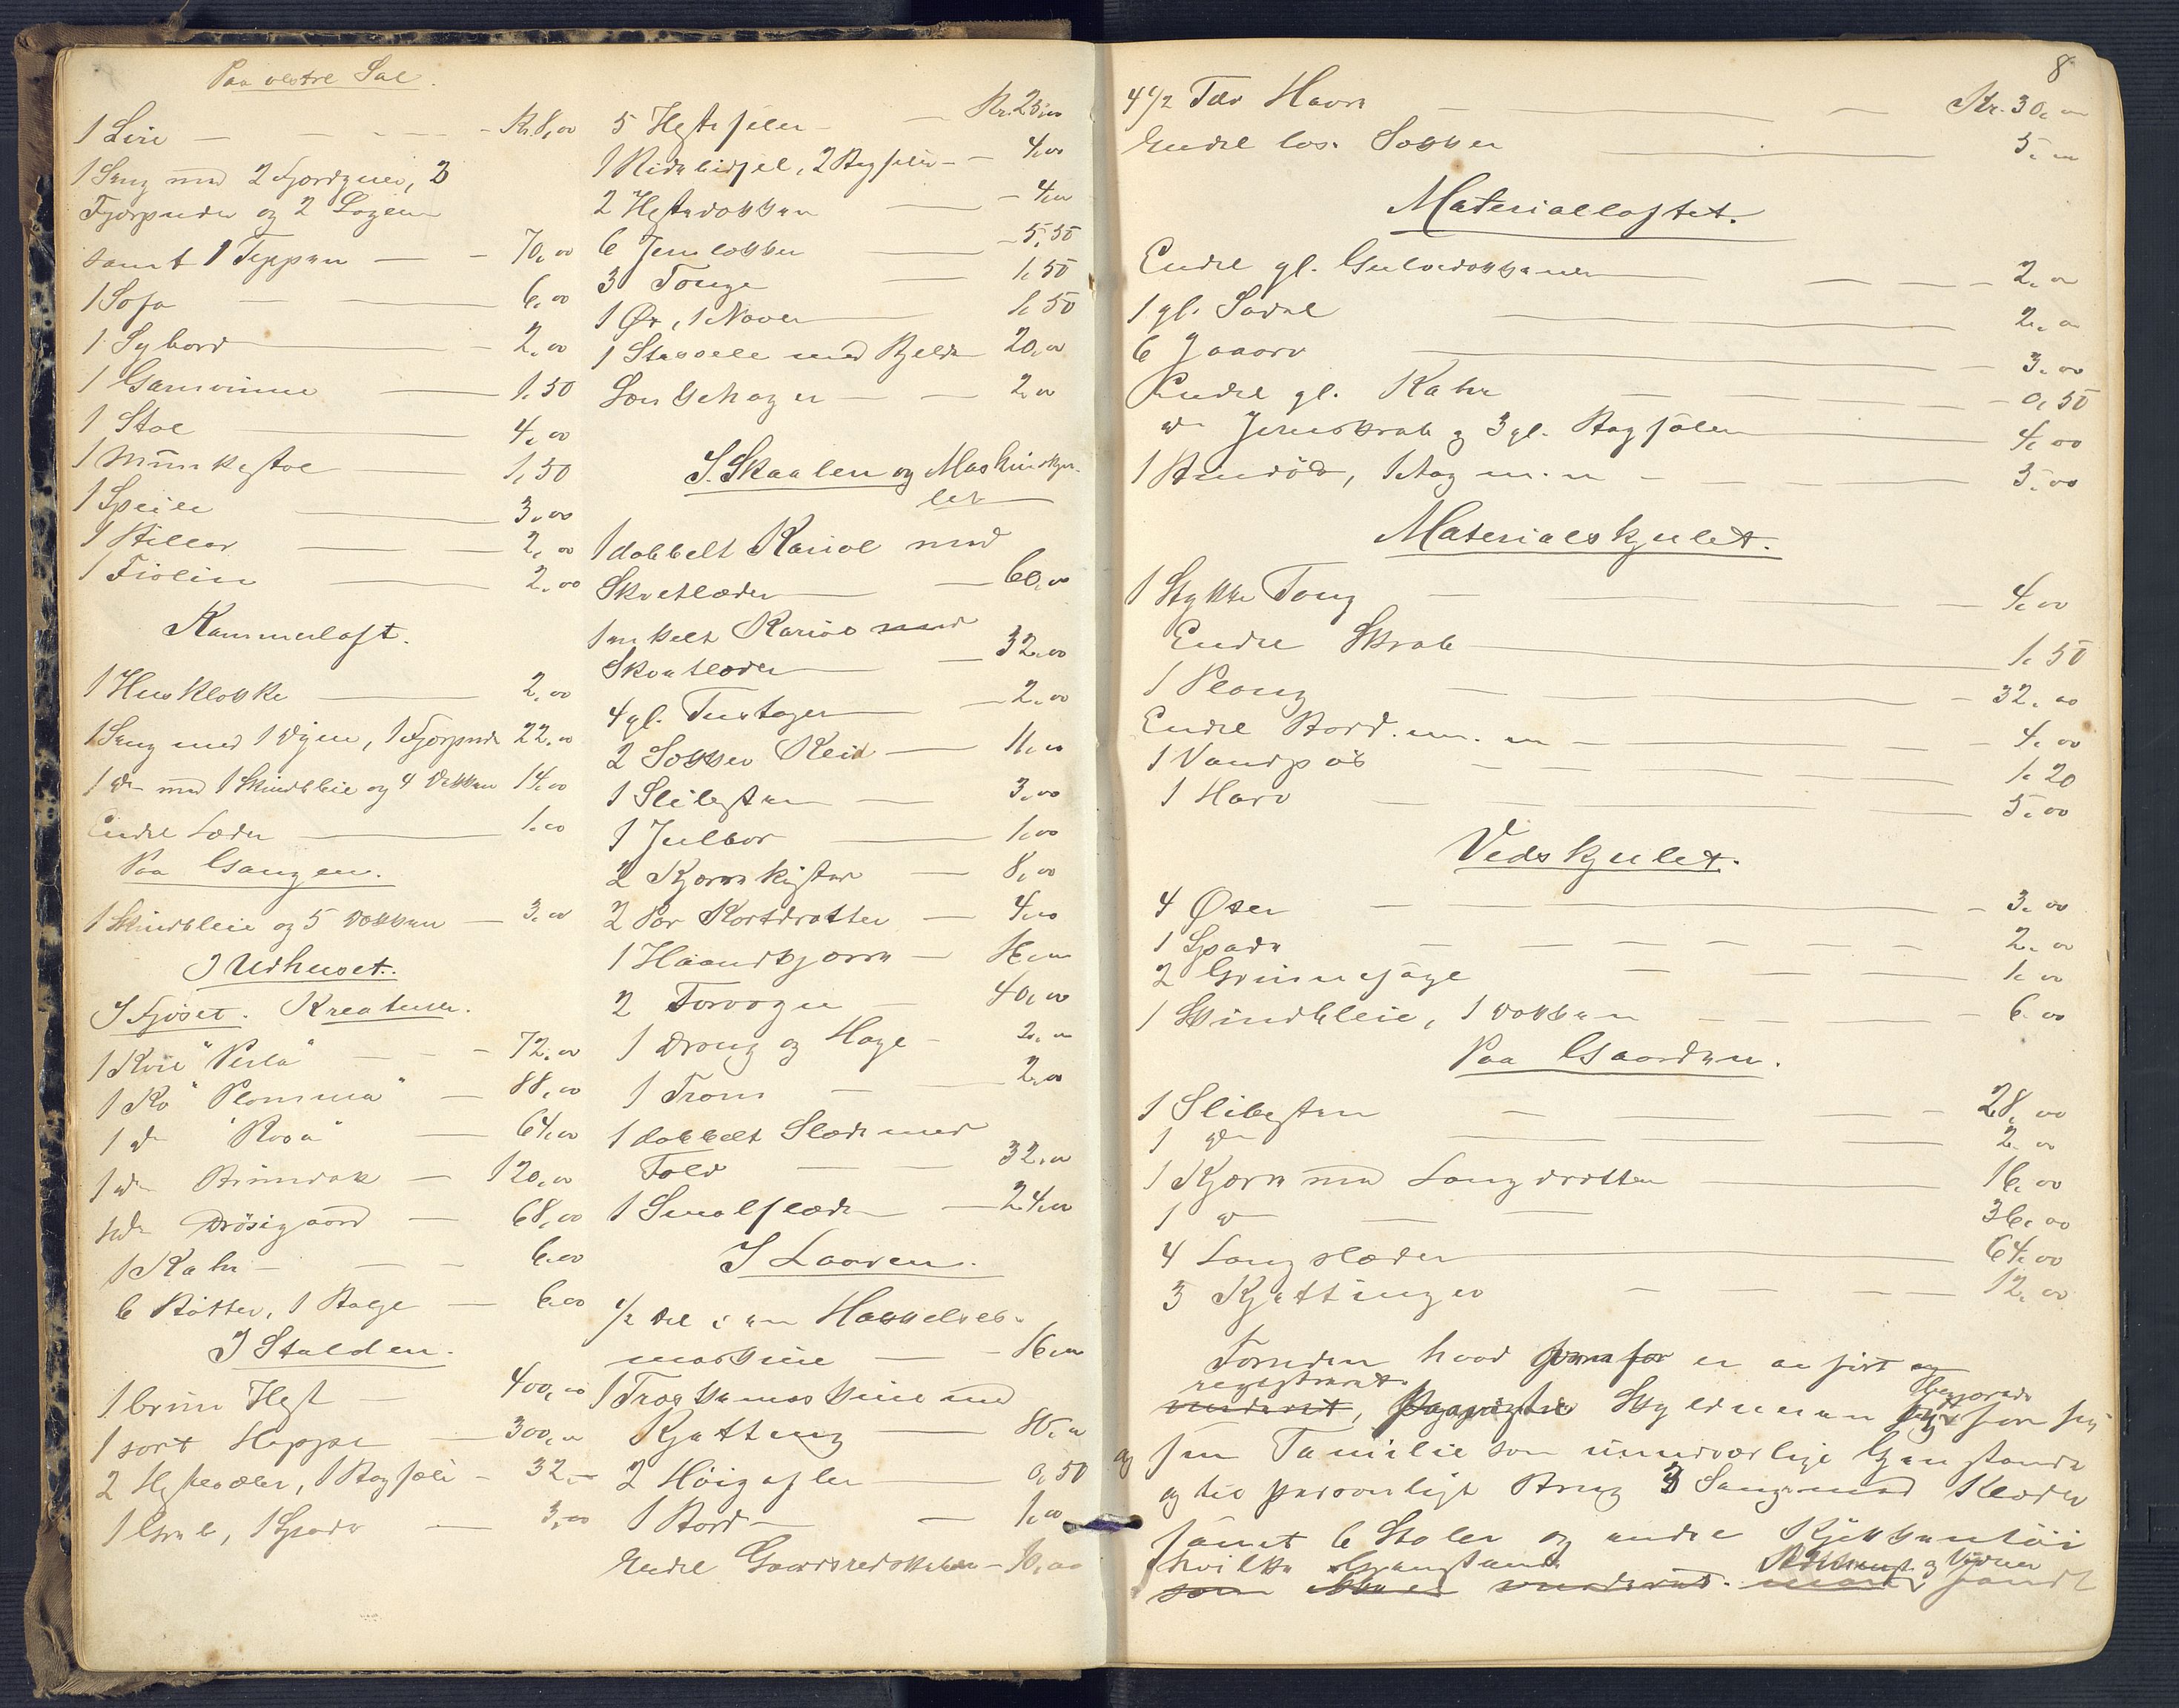 Paa vestre Sal.
1 Liri — Kr. 8,00
1 Seng med 2 Fjærdyner, 2
Fjærpuder og 2 Lagener
samt 1 Teppen — 70,00
1 Sofa — 6,00
1 Sybord — 2,00
1 Garnvinne — 1,50
1 Stol — 4,00
1 — 1,50
1 Speile — 3,00
1 — 2,00
1 Fiolin — 2,00
Kammerloft.
1 Husklokke — 2,00
1 Seng med 1 Dyne, 1 Fjærpude 22,00
1 do med 1 Skindbleie og 4 Dækken 14,00
Endel Læder — 1,00
Paa Gangen.
1 Skindbleie og 5 Dækken — 3,00
I Udhuset.
I Fjøset. Kreaturer.
1 Kvie "Perla" — 72,00
1 Ko "Plomma" — 88,00
1 do "Rosa" — 64,00
1 do — 120,00
1 do Drøsigaard — 68,00
1 Kalv — 6,00
6 Bøtter, 1 Balje — 6,00
I Stalden.
1 brun Hest — 400,00
1 sort Hoppe — 300,00
2 Hestesæler, 1 Bagsæle — 32,—
1 Greb, 1 Spade — 3,00
5 Hestesæler — Kr. 25,00
1 Ridebidsel, 2 Bagsæler — 4,00
2 Hestedækken — 4,00
6 — 5,50
3 Tønge — 1,50
1 Øx, 1 Naver — 1,50
1 Stassele med Bjelde 20,00
— 2,00
I Skaalen og Maskinskju-
let
1 dobbelt Kariol med
Skvetlæder — 60,00
1 enkelt Kariol med
Skvetlæder — 32,00
4 gl. Fustager — 2,00
2 Sækker Klid — 11,00
1 Slibesten — 3,00
1 Julbor — 1,00
2 Kjørrekister — 8,00
2 Par Kortdrætter — 4,00
1 Haandkjærre — 16,00
2 Torvogne — 40,00
1 Drong og Hage — 2,00
1 Trom — 2,00
1 dobbelt Slæde med
Fæld — 32,00
1 Smalslæde — 24,00
I Laaven.
1/2 Del i en Hakkelses-
maskine — 16,00
1 Træskemaskine med
Kjætting — 80,00
2 Høigafler — 0,50
1 Bord — 1,00
Endel Gaardsredskaber — 10,00
8
4 1/2 Tdr Havre — Kr. 30,00
Endel løs. Sækker — 5,00
Materialloftet.
Endel gl. Gulvdækkener — 2,00
1 gl. Sadel — 2,00
6 Jaaarv — 3,00
Endel gl. Kahr — 0,50
do Jernskrab og 3 gl. Bagsæler — 4,00
1 — m. m — 3,00
Materialskjulet.
1 Stykke Toug — 4,00
Endel Skrab — 1,50
1 Ploug — 32,00
Endel Bord. m. m — 4,00
1 Vandpøs — 1,20
1 Harv — 5,00
Vedskjulet.
4 Øxer — 3,00
1 Spade — 2,00
2 Grinnesage — 1,00
1 Skindbleie, 1 Dækken — 6,00
Paa Gaarden.
1 Slibesten — 28,00
1 do — 2,00
1 Kjærre med Langdrætter — 16,00
1 do — 36,00
4 Langslæder — 64,00
3 Kjættinger — 12,00
Foruden hvad er anført og
registreret Begjærede
vurderet, Skyldneren sig for sig
og sin Familie som uundværlige Gjenstande
og til personligt Brug 3 Senge med Klæder
samt 6 Stoler og andre Kjøkkentøi
hvilke Gjenstande og Vidner
som ikke er vurderet. fandt